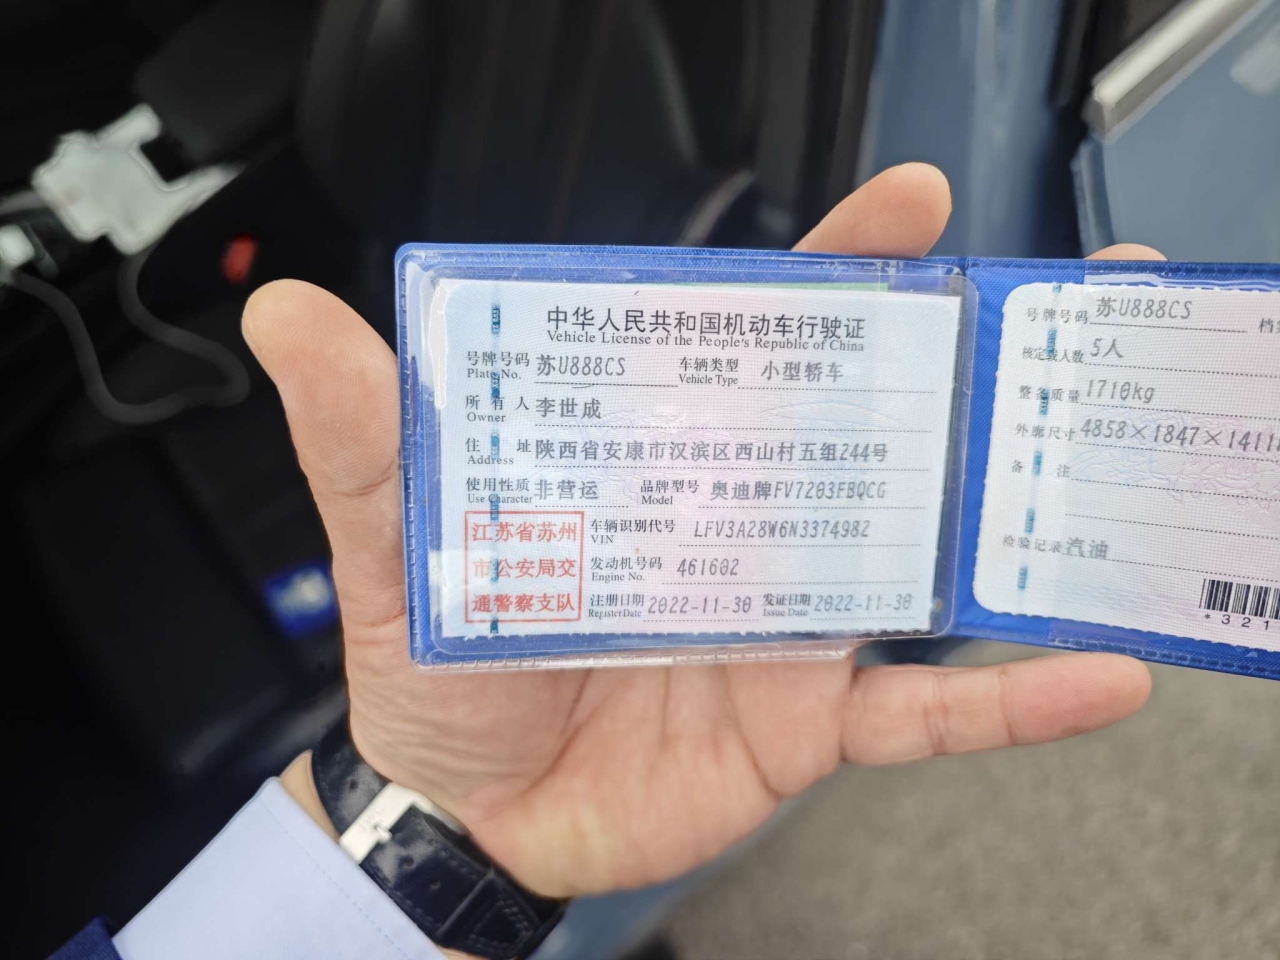 中华人民共和国机动车行驶证
Vehicle License of the People's Republic of China
号牌号码 苏U888CS 车辆类型 小型轿车
Plate No. Vehicle Type
所有人 李世成
Owner
住址 陕西省安康市汉滨区西山村五组244号
Address
使用性质 非营运 品牌型号 奥迪牌FV7203FBQCG
Use Character Model
江苏省苏州
市公安局交
通警察支队
车辆识别代号 LFV3A28W6N3374982
VIN
发动机号码 461602
Engine No.
注册日期 2022-11-30 发证日期 2022-11-30
Register Date Issue Date
号牌号码 苏U888CS 档
核定载人数 5人
整备质量 1710kg
外廓尺寸 4858×1847×1411
备注
检验记录 汽油
*321